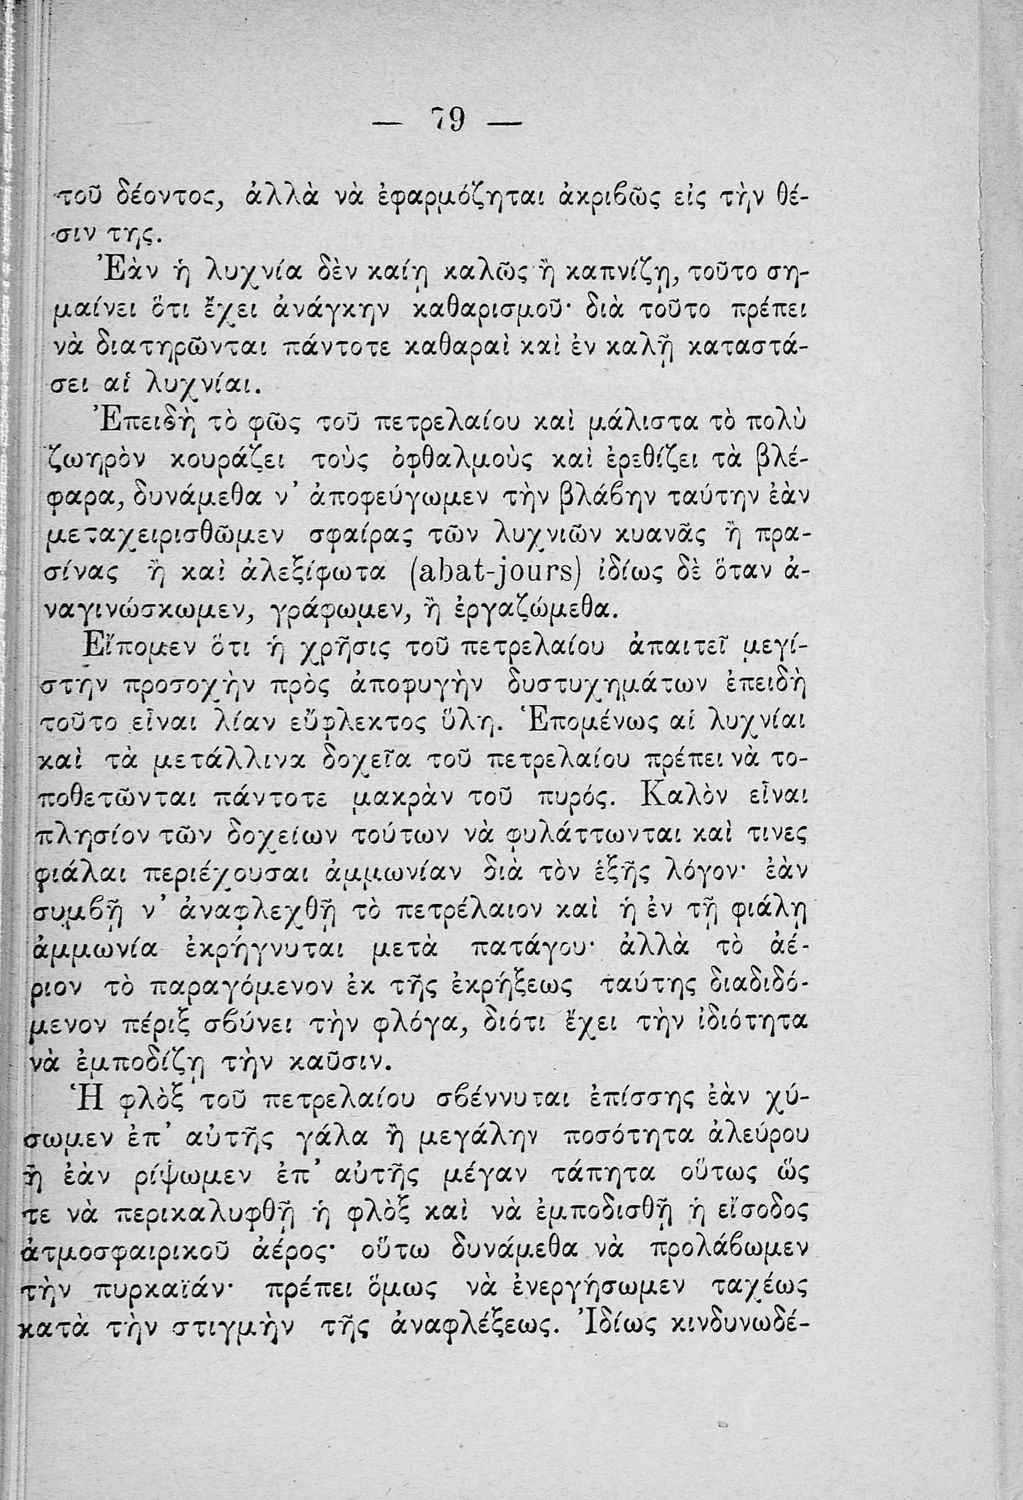 — 79 —
τοῦ δέοντος, ἀλλὰ νὰ ἐφαρμόζηται ἀκριϐῶς εἰς τὴν θέ-
σιν της.
Ἐὰν ἡ λυχνία δὲν καίῃ καλῶς ἢ καπνίζῃ, τοῦτο ση-
μαίνει ὅτι ἔχει ἀνάγκην καθαρισμοῦ· διὰ τοῦτο πρέπει
νὰ διατηρῶνται πάντοτε καθαραὶ καὶ ἐν καλῇ καταστά-
σει αἱ λυχνίαι.
Ἐπειδὴ τὸ φῶς τοῦ πετρελαίου καὶ μάλιστα τὸ πολὺ
ζωηρὸν κουράζει τοὺς ὀφθαλμοὺς καὶ ἐρεθίζει τὰ βλέ-
φαρα, δυνάμεθα ν’ ἀποφεύγωμεν τὴν βλάϐην ταύτην ἐὰν
μεταχειρισθῶμεν σφαίρας τῶν λυχνιῶν κυανᾶς ἢ πρα-
σίνας ἢ καὶ ἀλεξίφωτα (abat-jours) ἰδίως δὲ ὅταν ἀ-
ναγινώσκωμεν, γράφωμεν, ἢ ἐργαζώμεθα.
Εἴπομεν ὅτι ἡ χρῆσις τοῦ πετρελαίου ἀπαιτεῖ μεγί-
στην προσοχὴν πρὸς ἀποφυγὴν δυστυχημάτων ἐπειδὴ
τοῦτο εἶναι λίαν εὔφλεκτος ὕλη. Ἑπομένως αἱ λυχνίαι
καὶ τὰ μετάλλινα δοχεῖα τοῦ πετρελαίου πρέπει νὰ το-
ποθετῶνται πάντοτε μακρὰν τοῦ πυρός. Καλὸν εἶναι
πλησίον τῶν δοχείων τούτων νὰ φυλάττωνται καὶ τινες
φιάλαι περιέχουσαι ἀμμωνίαν διὰ τὸν ἑξῆς λόγον· ἐὰν
συμϐῇ ν’ ἀναφλεχθῇ τὸ πετρέλαιον καὶ ἡ ἐν τῇ φιάλῃ
ἀμμωνία ἐκρήγνυται μετὰ πατάγου· ἀλλὰ τὸ ἀέ-
ριον τὸ παραγόμενον ἐκ τῆς ἐκρήξεως ταύτης διαδιδό-
μενον πέριξ σϐύνει τὴν φλόγα, διότι ἔχει τὴν ἰδιότητα
νὰ ἐμποδίζῃ τὴν καῦσιν.
Ἡ φλὸξ τοῦ πετρελαίου σϐέννυται ἐπίσσης ἐὰν χύ-
σωμεν ἐπ’ αὐτῆς γάλα ἢ μεγάλην ποσότητα ἀλεύρου
ἢ ἐὰν ρίψωμεν ἐπ’ αὐτῆς μέγαν τάπητα οὕτως ὥς
τε νὰ περικαλυφθῇ ἡ φλὸξ καὶ νὰ ἐμποδισθῇ ἡ εἴσοδος
ἀτμοσφαιρικοῦ ἀέρος· οὕτω δυνάμεθα νὰ προλάϐωμεν
τὴν πυρκαϊάν· πρέπει ὅμως νὰ ἐνεργήσωμεν ταχέως
κατὰ τὴν στιγμὴν τῆς ἀναφλέξεως. Ἰδίως κινδυνωδέ-